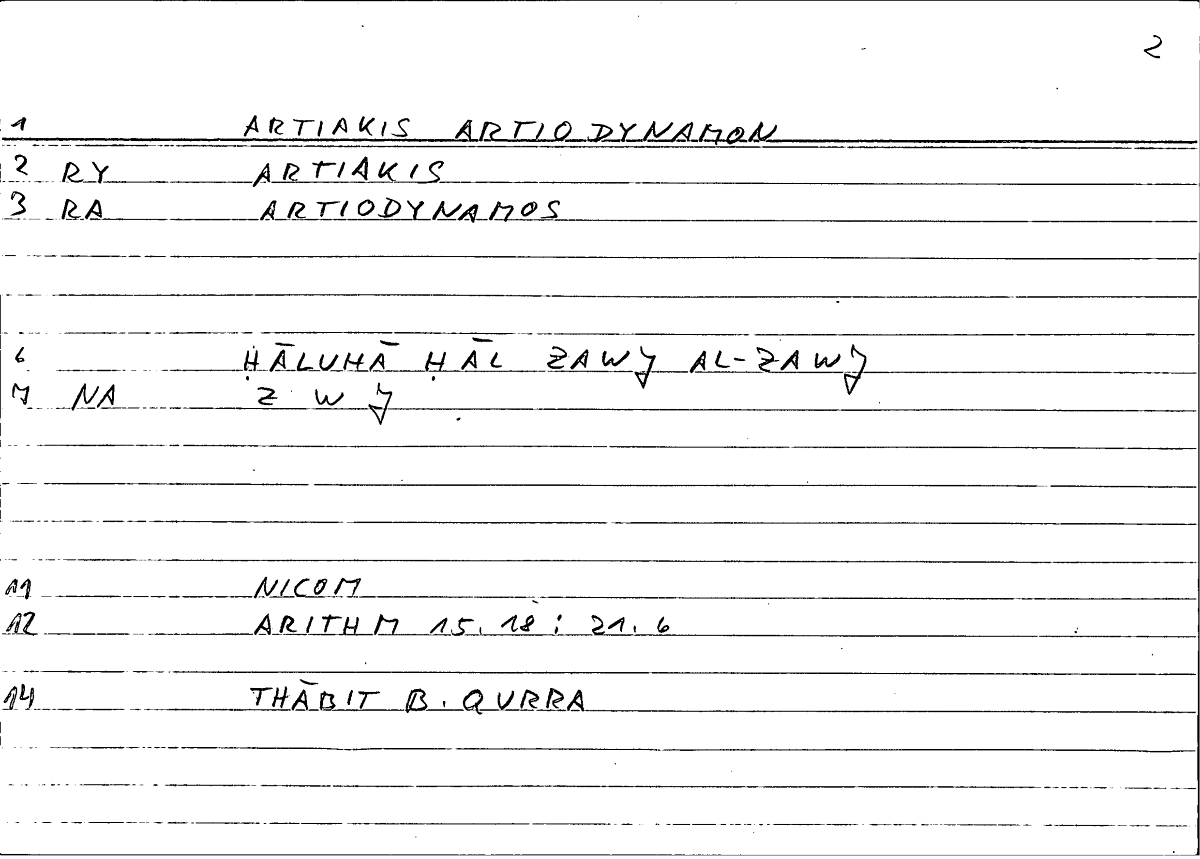 2
1 ARTIAKIS ARTIODYNAMON
2 RY ARTIAKIS
3 RA ARTIODYNAMOS
6 ḤĀLUHĀ ḤĀL ZAWJ AL-ZAWJ
7 NA Z W J
11 NICOM
12 ARITHM 15.18 : 21.6
14 THĀBIT B. QURRA